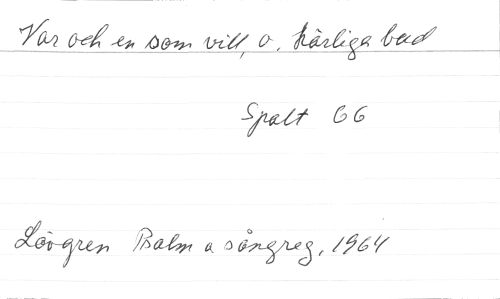 Var och en som vill, o, härliga bud
Spalt 66
Lövgren Psalm o sångreg, 1964